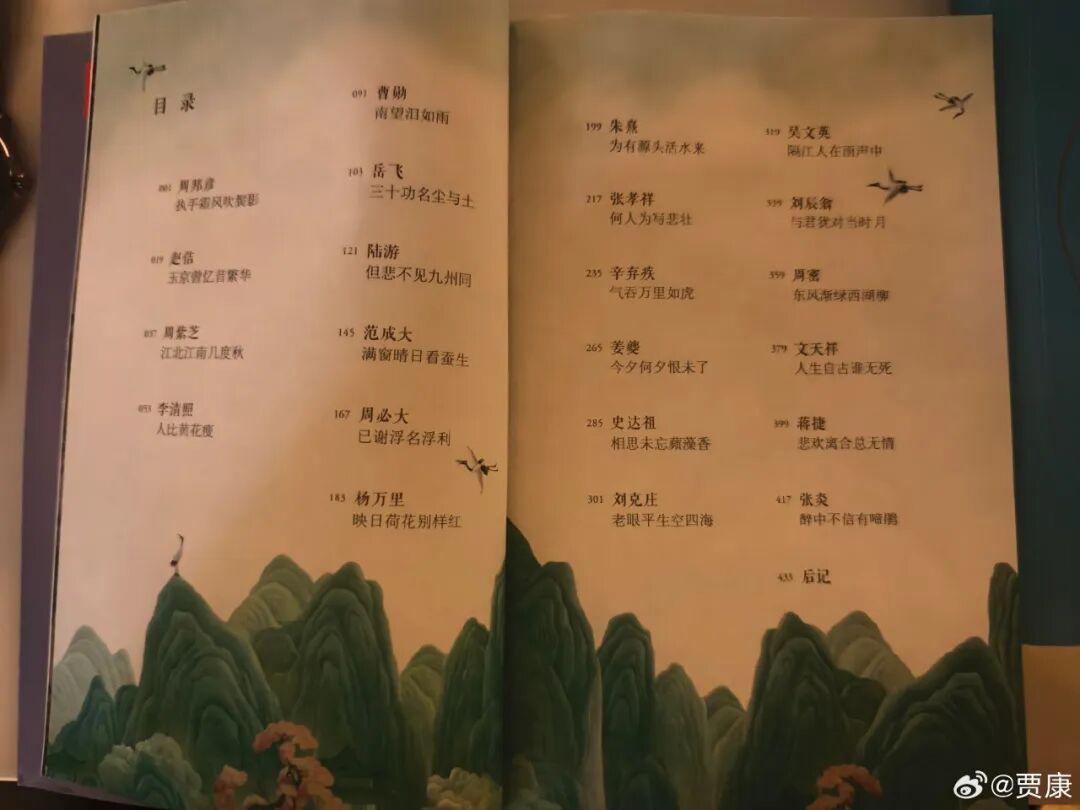 目录
001 周邦彦
执手霜风吹鬓影
019 赵佶
玉京曾忆昔繁华
037 周紫芝
江北江南几度秋
053 李清照
人比黄花瘦
091 曹勋
南望泪如雨
103 岳飞
三十功名尘与土
121 陆游
但悲不见九州同
145 范成大
满窗晴日看蚕生
167 周必大
已谢浮名浮利
183 杨万里
映日荷花别样红
199 朱熹
为有源头活水来
217 张孝祥
何人为写悲壮
235 辛弃疾
气吞万里如虎
265 姜夔
今夕何夕恨未了
285 史达祖
相思未忘蘋藻香
301 刘克庄
老眼平生空四海
319 吴文英
隔江人在雨声中
339 刘辰翁
与君犹对当时月
359 周密
东风渐绿西湖柳
379 文天祥
人生自古谁无死
399 蒋捷
悲欢离合总无情
417 张炎
醉中不信有啼鹃
433 后记
@贾康